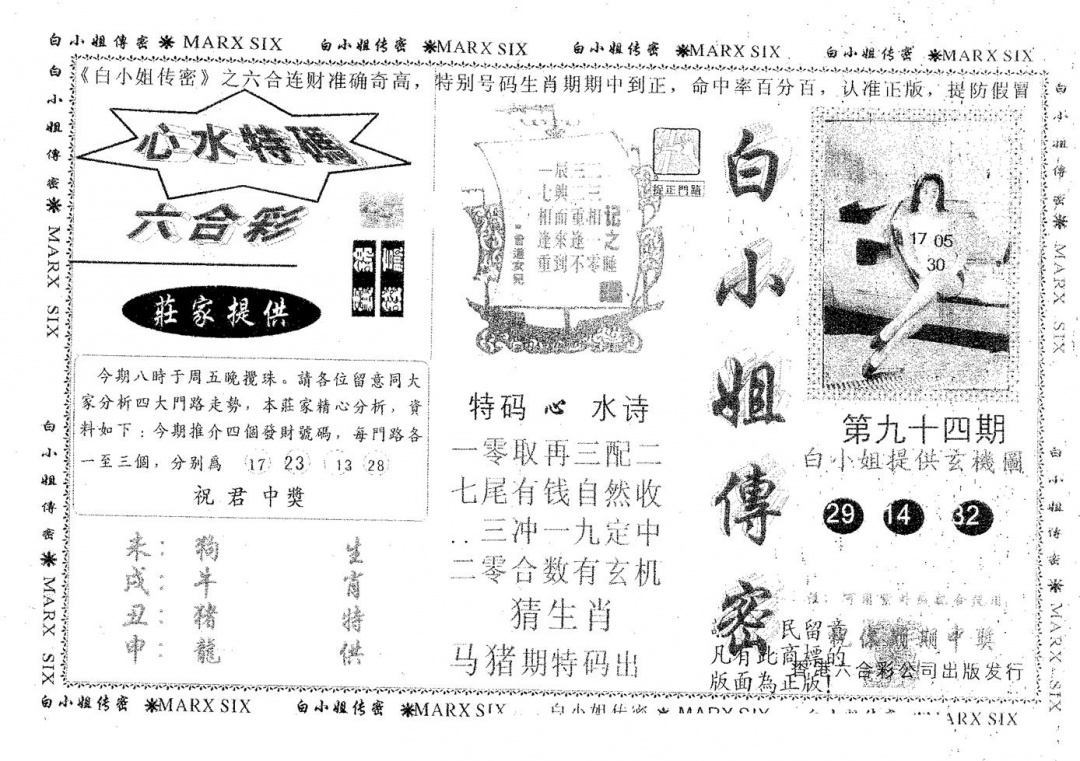 白小姐傳密 ❋ MARX SIX 白小姐传密 ❋MARX SIX 白小姐传密 ❋MARX SIX 白小姐传密 ❋MARX SIX
《白小姐传密》之六合连财准确奇高，特别号码生肖期期中到正，命中率百分百，认准正版，提防假冒
心水特碼
六合彩
莊家提供
今期八時于周五晚攪珠。請各位留意同大
家分析四大門路走勢，本莊家精心分析，資
料如下：今期推介四個發財號碼，每門路各
一至三個，分别爲 17 23 13 28
祝君中獎
未：狗
戌：牛
丑：猪
申：龍
生肖特供
一辰三二
七興二三
相面重相
逢來逢一
重到不零
曾道女兒
特码 心 水诗
一零取再三配二
七尾有钱自然收
三冲一九定中
二零合数有玄机
猜生肖
马猪期特码出
白小姐傳密
17 05
30
第九十四期
白小姐提供玄機圖
29 14 32
祝你期期中獎
民留意
凡有此商標的
版面為正版!
香港六合彩公司出版发行
白小姐傳密 ❋ MARX SIX
白小姐傳密 ❋ MARX SIX
白小姐傳密 ❋ MARX SIX
白小姐傳密 ❋ MARX SIX
白小姐传密 ❋MARX SIX 白小姐传密 ❋MARX SIX